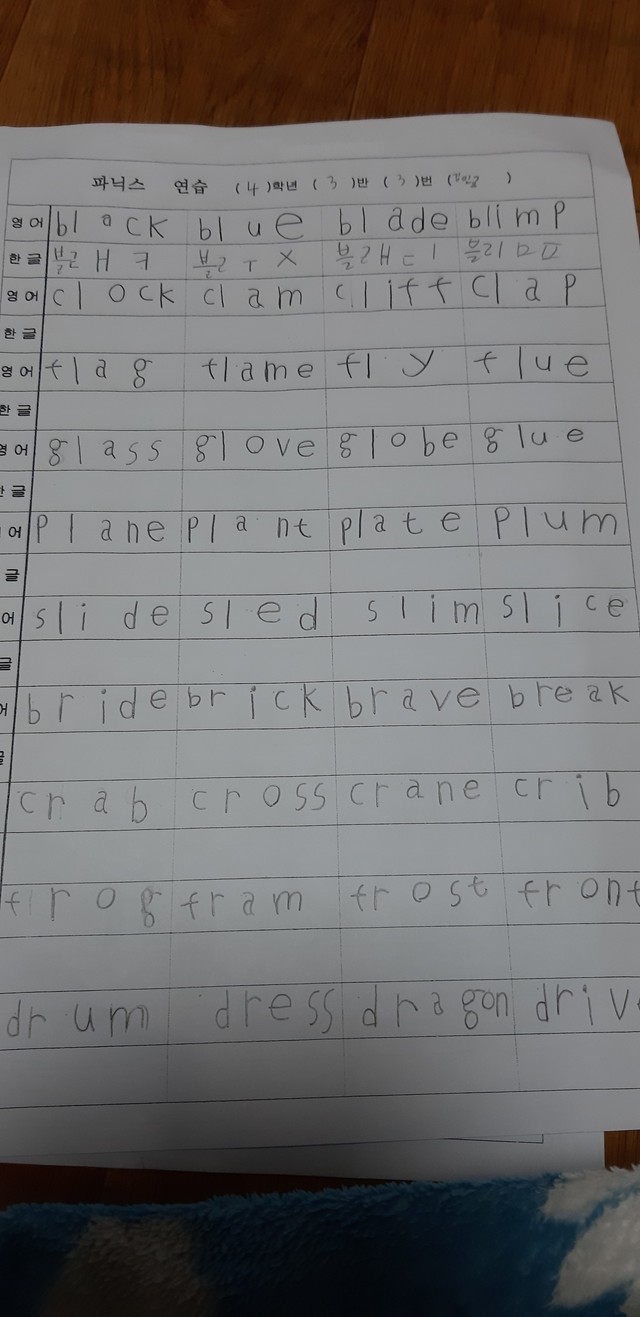 파닉스 연습 (4)학년 (3)반 (3)번 ( )
영어 block blue blade blimp
한글 블ㄹ ㅐ ㅋ 블ㄹ ㅜ X 블ㄹㅐㄷㅣ 블리ㅁㅍ
영어 clock clam cliff clap
한글
영어 flag flame fly flue
한글
영어 glass glove globe glue
한글
어 plane plant plate plum
글
어 slide sled slim slice
글
어 bride brick brave break
글
crab cross crane crib
frog fram frost front
drum dress dragon driv